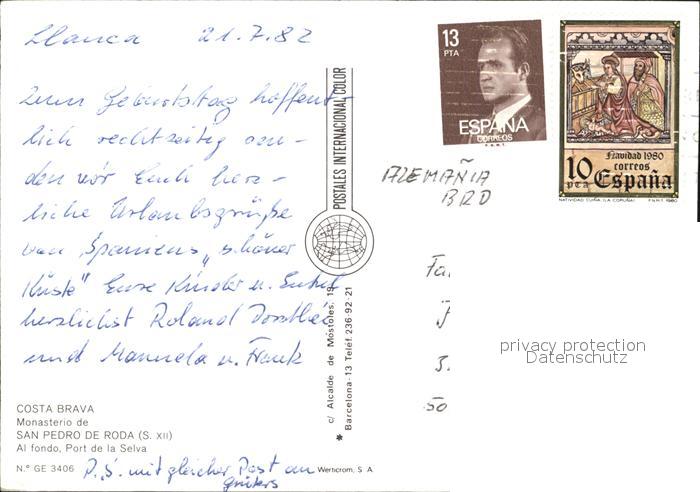 Llanca 21.7.82
Zum Geburtstag hoffent-
lich rechtzeitig sen-
den wir Euch herz-
liche Urlaubsgrüße
von Spaniens "schöner
Küste" Eure Kinder u. Enkel
herzlichst Roland Dorothea
und Manuela u. Frank
COSTA BRAVA
Monasterio de
SAN PEDRO DE RODA (S. XII)
Al fondo, Port de la Selva
N.º GE 3406
P.S. mit gleicher Post an
Werticrom, S. A.
POSTALES INTERNACIONAL COLOR
c/ Alcalde de Móstoles, 19
* Barcelona-13 Teléf. 236-92-21
13
PTA
ESPAÑA
CORREOS
F.N.M.T.
Navidad 1980
correos
10
pta España
NATIVIDAD CUIÑA (LA CORUÑA) F.N.M.T. 1980
ALEMAÑIA
BRD
Fa
J
3.
50
privacy protection
Datenschutz